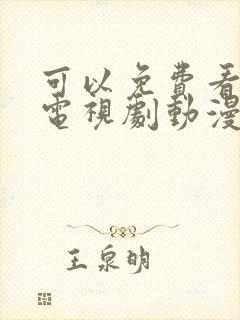 可以免費看
電視劇動漫
王泉明